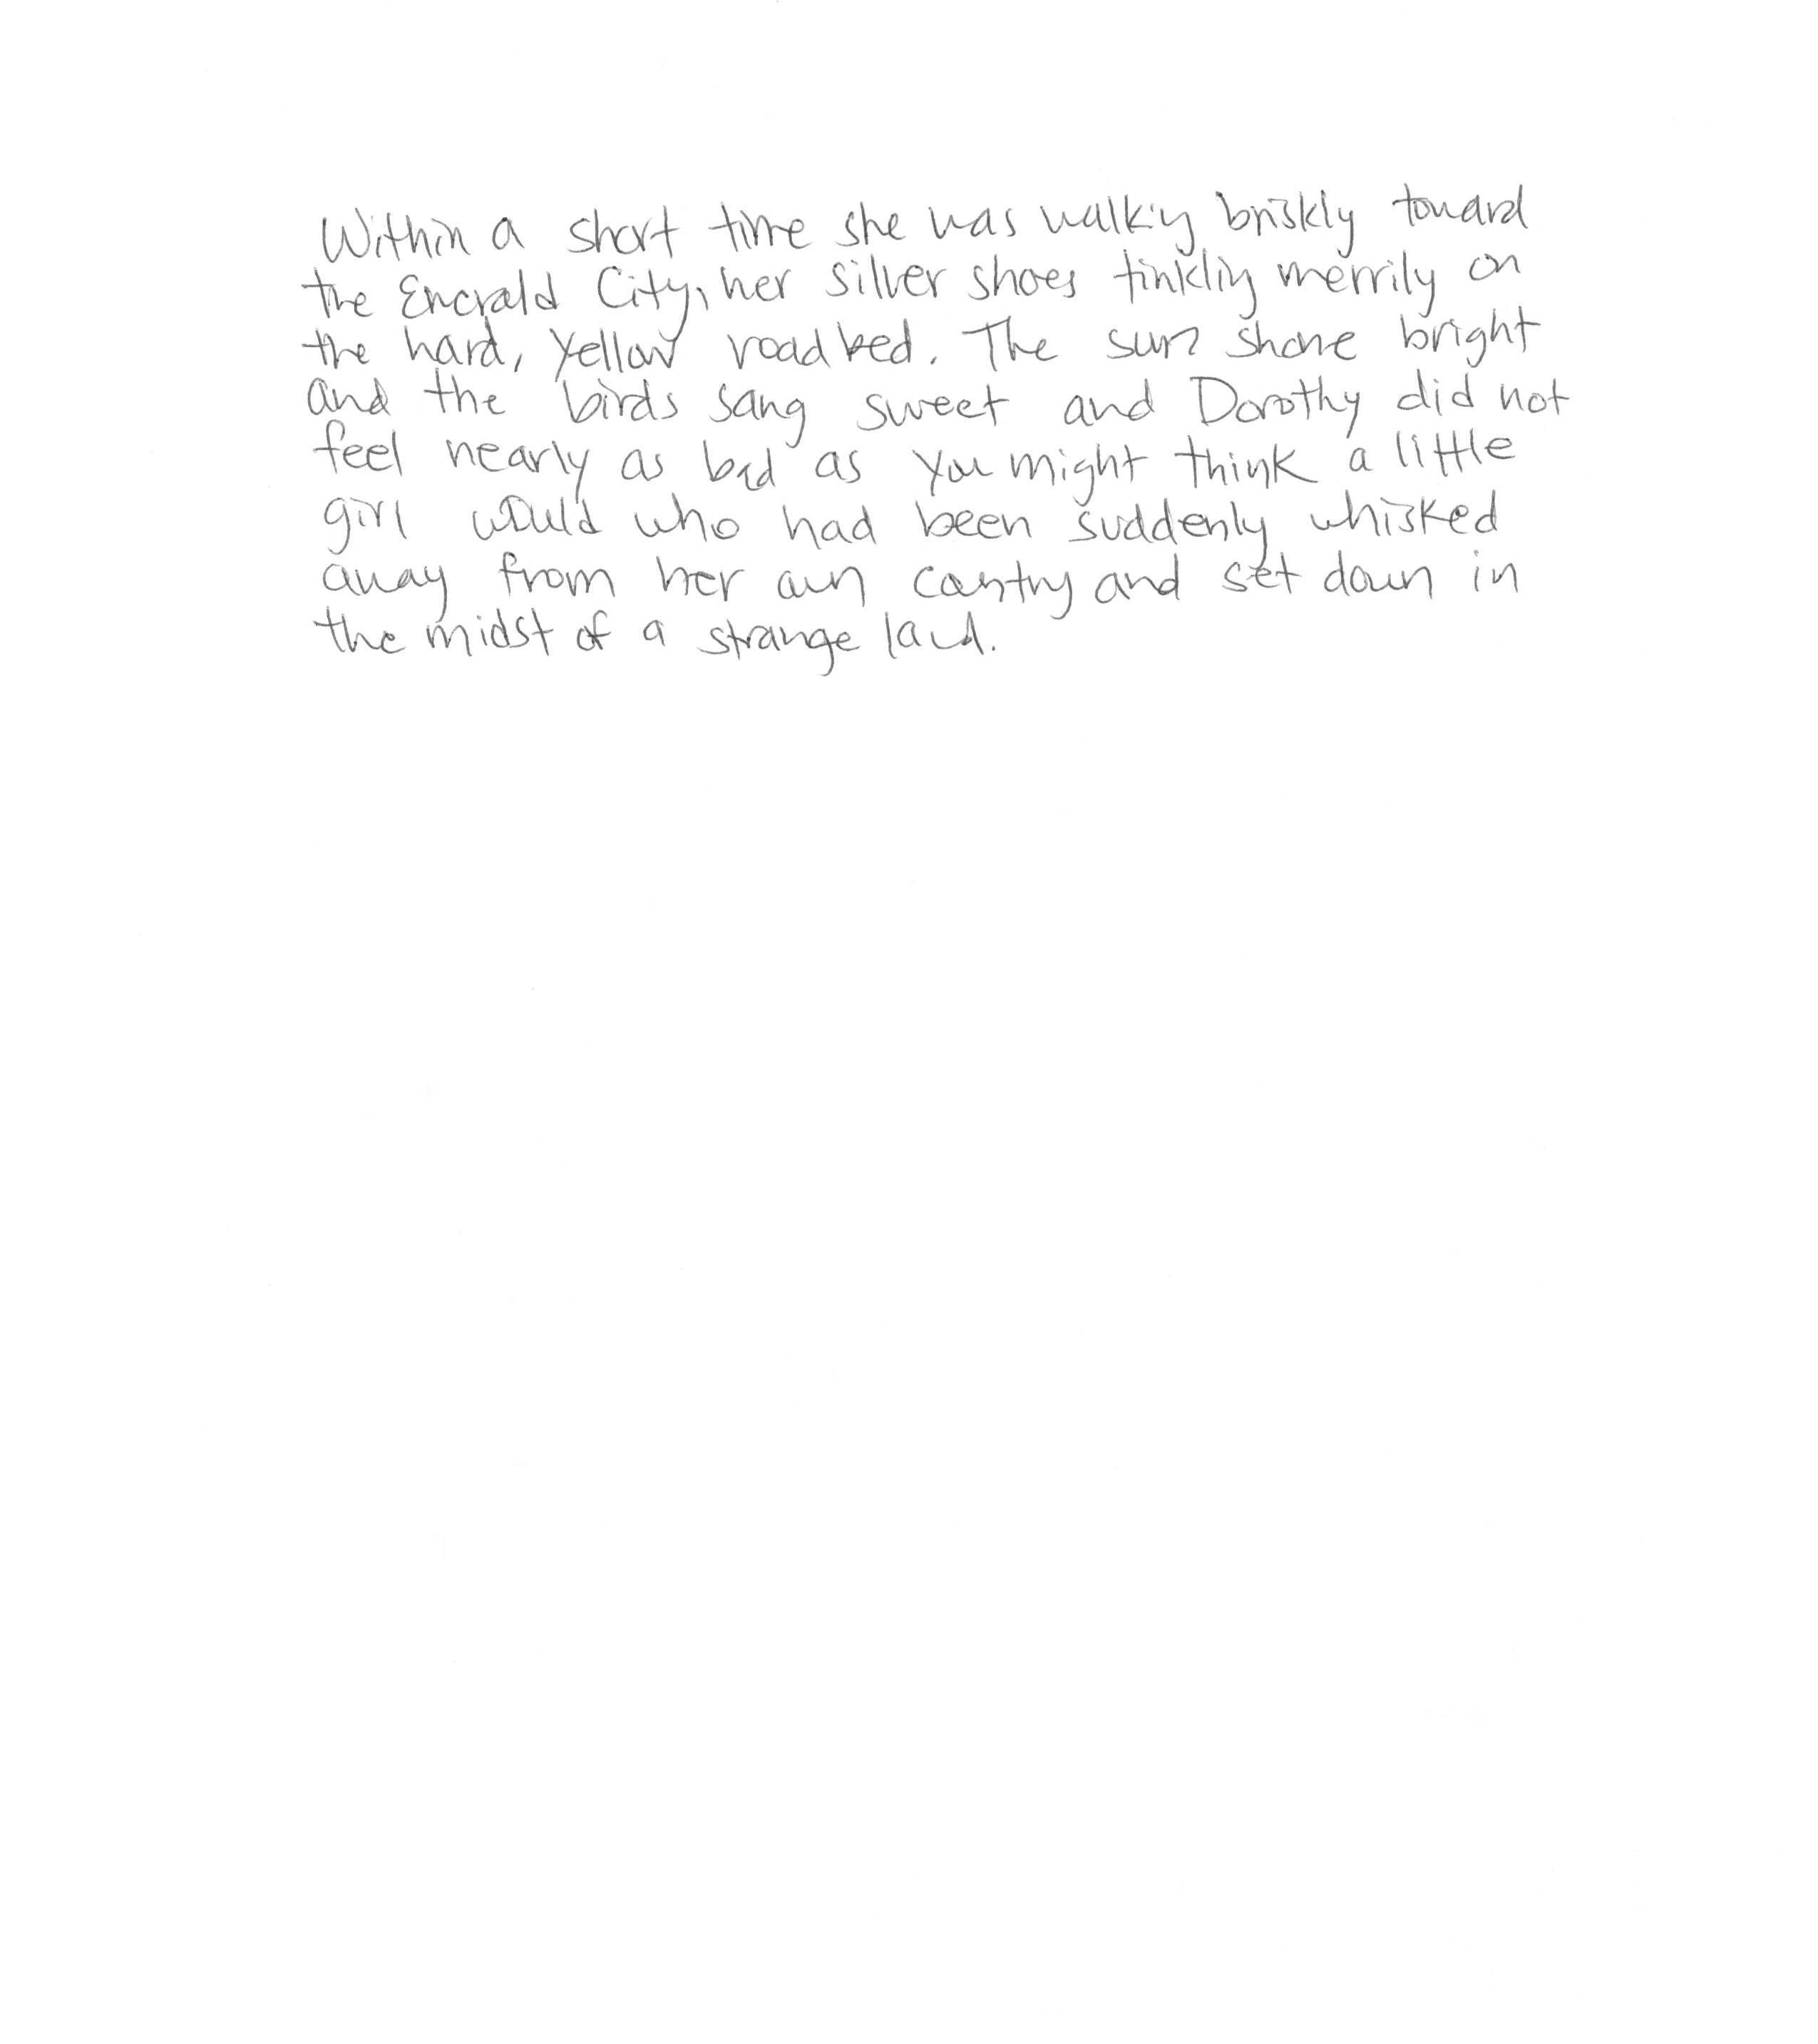 Within a short time she was walking briskly toward
the Emerald City, her silver shoes tinkling merrily on
the hard, yellow roadbed. The sun shone bright
and the birds sang sweet and Dorothy did not
feel nearly as bad as you might think a little
girl would who had been suddenly whisked
away from her own country and set down in
the midst of a strange land.